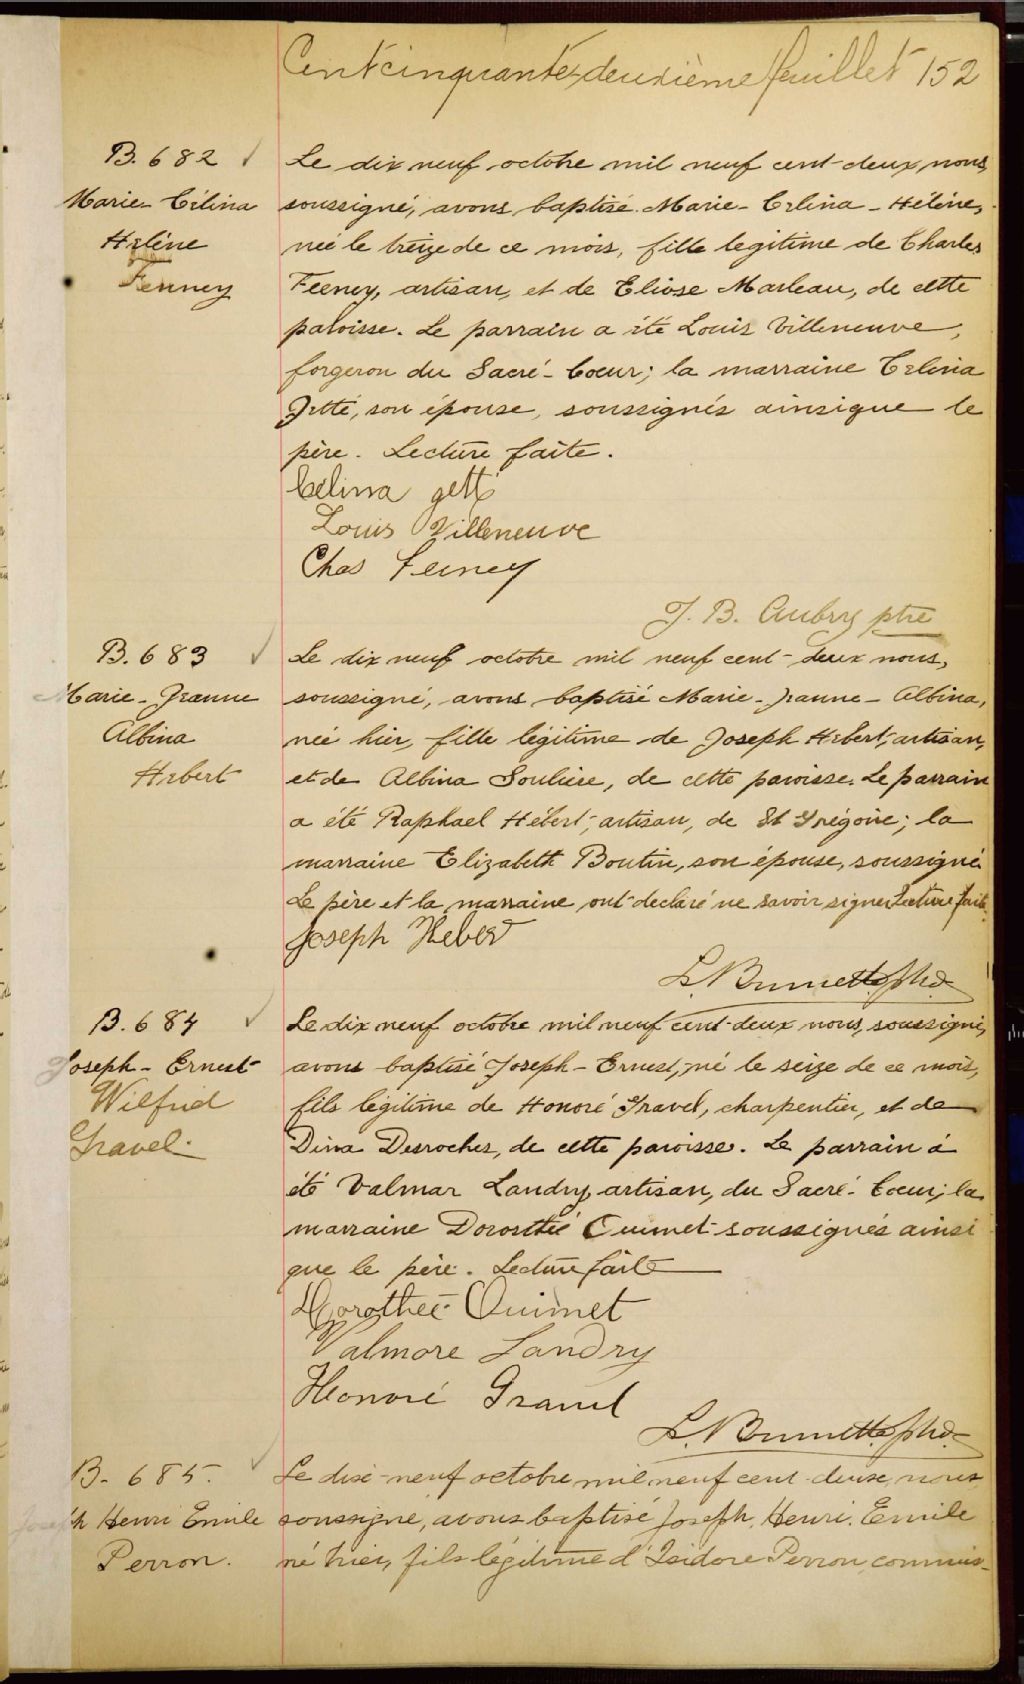 Cent cinquante-deuxième feuillet 152
B. 682
Marie-Célina
Hélène
Fenney
Le dix neuf octobre mil neuf cent deux, nous,
soussigné, avons baptisé Marie-Célina-Hélène,
née le treize de ce mois, fille legitime de Charles
Feeney, artisan, et de Eliose Marleau, de cette
paroisse. Le parrain a été Louis Villeneuve,
forgeron du Sacré-Coeur; la marraine Célina
Jetté, son épouse, soussignés ainsique le
père. Lecture faite.
Célina Jetté
Louis Villeneuve
Chas Feeney
J. B. Aubry ptre
B. 683
Marie-Jeanne
Albina
Hébert
Le dix neuf octobre mil neuf cent-deux nous,
soussigné, avons baptisé Marie-Jeanne-Albina,
née hier, fille légitime de Joseph Hébert, artisan,
et de Albina Soulière, de cette paroisse. Le parrain
a été Raphael Hébert, artisan, de St Grégoire; la
marraine Elizabeth Boutin, son épouse, soussigné.
Le père et la marraine ont déclaré ne savoir signer. Lecture faite.
Joseph Heber
B. 684
Joseph-Ernest
Wilfrid
Gravel.
Le dix neuf octobre mil neuf cent-deux nous, soussigné,
avons baptisé Joseph-Ernest, né le seize de ce mois,
fils légitime de Honoré Gravel, charpentier, et de
Dina Desroches, de cette paroisse. Le parrain à
été Valmar Landry, artisan, du Sacré-Coeur; la
marraine Dorosthée Ouimet soussignés ainsi
que le père. Lecture faite
Dorothée Ouimet
Valmore Landry
Honoré Gravel
B. 685.
Joseph Henri Emile
Perron.
Le dix-neuf octobre mil neuf cent deux, nous
soussigné, avons baptisé Joseph, Henri, Emile
né hier, fils légitime d'Isidore Perron, commis-